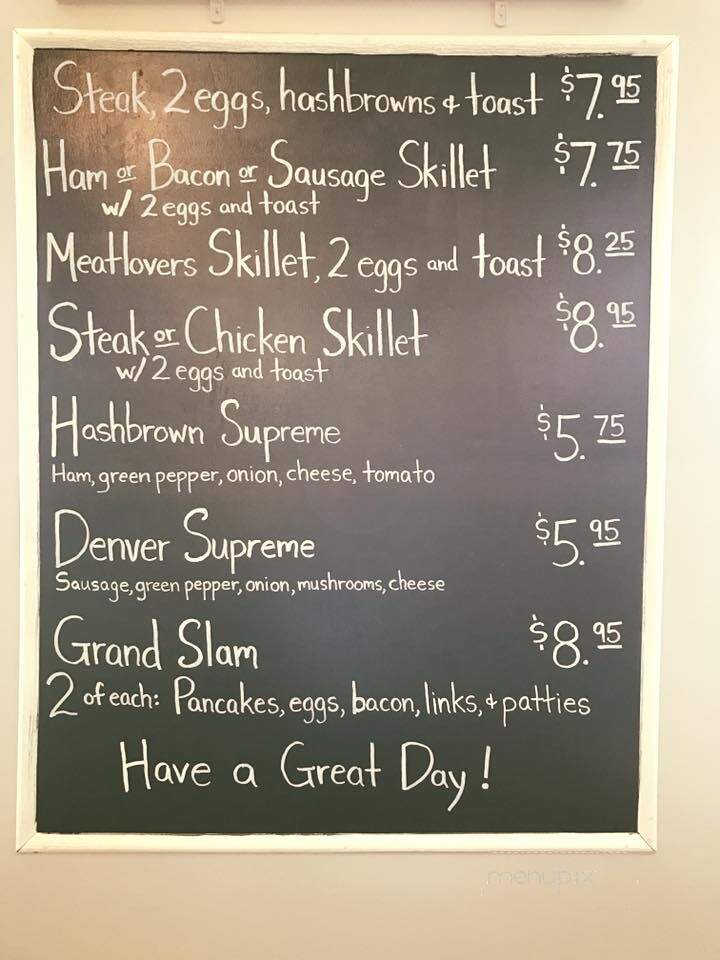 Steak, 2 eggs, hashbrowns + toast $7.95
Ham or Bacon or Sausage Skillet $7.75
w/ 2 eggs and toast
Meatlovers Skillet, 2 eggs and toast $8.25
Steak or Chicken Skillet $8.95
w/ 2 eggs and toast
Hashbrown Supreme $5.75
Ham, green pepper, onion, cheese, tomato
Denver Supreme $5.95
Sausage, green pepper, onion, mushrooms, cheese
Grand Slam $8.95
2 of each: Pancakes, eggs, bacon, links, + patties
Have a Great Day!
menupix